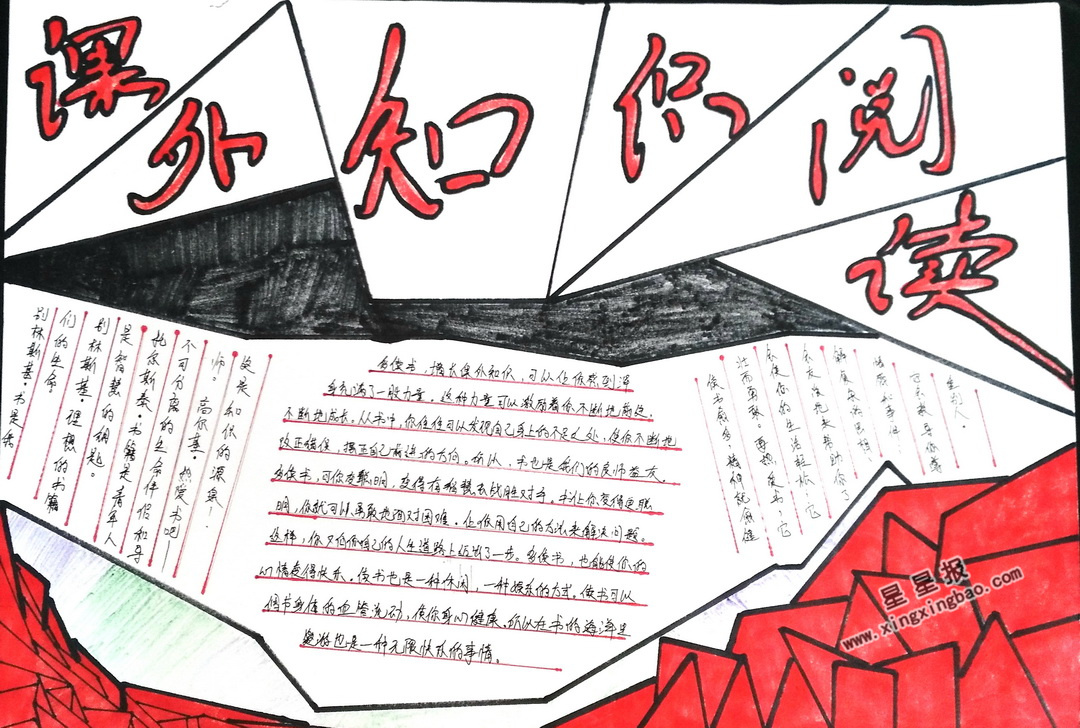 课外知识阅读
多读书，增长课外知识，可以让你感到浑
身充满了一股力量。这种力量可以激励着你不断地前进，
不断地成长。从书中，你往往可以发现自己身上的不足之处，使你不断地
改正错误，摆正自己前进的方向。所以，书也是我们的良师益友。
多读书，可你变聪明，变得有智慧去战胜对手。书让你变得更聪
明，你就可以勇敢地面对困难。让你用自己的方法来解决问题。
这样，你又向你自己的人生道路上迈出了一步。多读书，也能使你的
心情变得快乐。读书也是一种休闲，一种娱乐的方式。读书可以
调节身体的血管流动，使你身心健康。所以在书的海洋里
遨游也是一种无限快乐的事情。
别林斯基·书是我
们的生命。
别林斯基·理想的书籍
是智慧的钥匙。
托尔斯泰·书籍是青年人
不可分离的生命伴侣和导
师。高尔基·热爱书吧——
这是知识的源泉！
它会教导你
读书愈多，精神就愈健
壮而勇敢。
星星报
www.xingxingbao.com